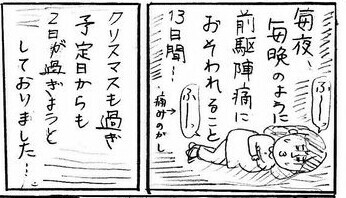 毎夜、
毎晩のように
前駆陣痛に
おそわれること
13日間…
ふーっ、
ふーっ
←痛みのがし
クリスマスも過ぎ
予定日からも
2日が過ぎようと
しておりました…